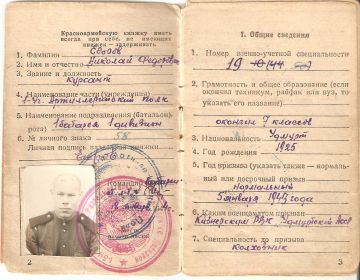 Красноармейскую книжку иметь
всегда при себе. не имеющих
книжек — задерживать
1. Фамилия
2. Имя и отчество Николай Федорович
3. Звание и должность
Курсант
4. Наименование части (учреждения)
Артиллерийский полк
5. Наименование подразделения (батальон,
рота) 1 батарея 1 дивизион
6. № личного знака
Личная подпись
Командир
2
1. Общие сведения
1. Номер военно-учетной специальности
19
2. Грамотность и общее образование (если
окончил техникум, рабфак или вуз, то
указать его название)
окончил 7 классов
3. Национальность Удмурт
4. Год рождения 1925
5. Год призыва (указать также — нормаль-
ный или досрочный призыв)
нормальный
5 января года
6. Каким военкоматом призван
Кизнерским РВК
7. Специальность до призыва
Колхозник
3